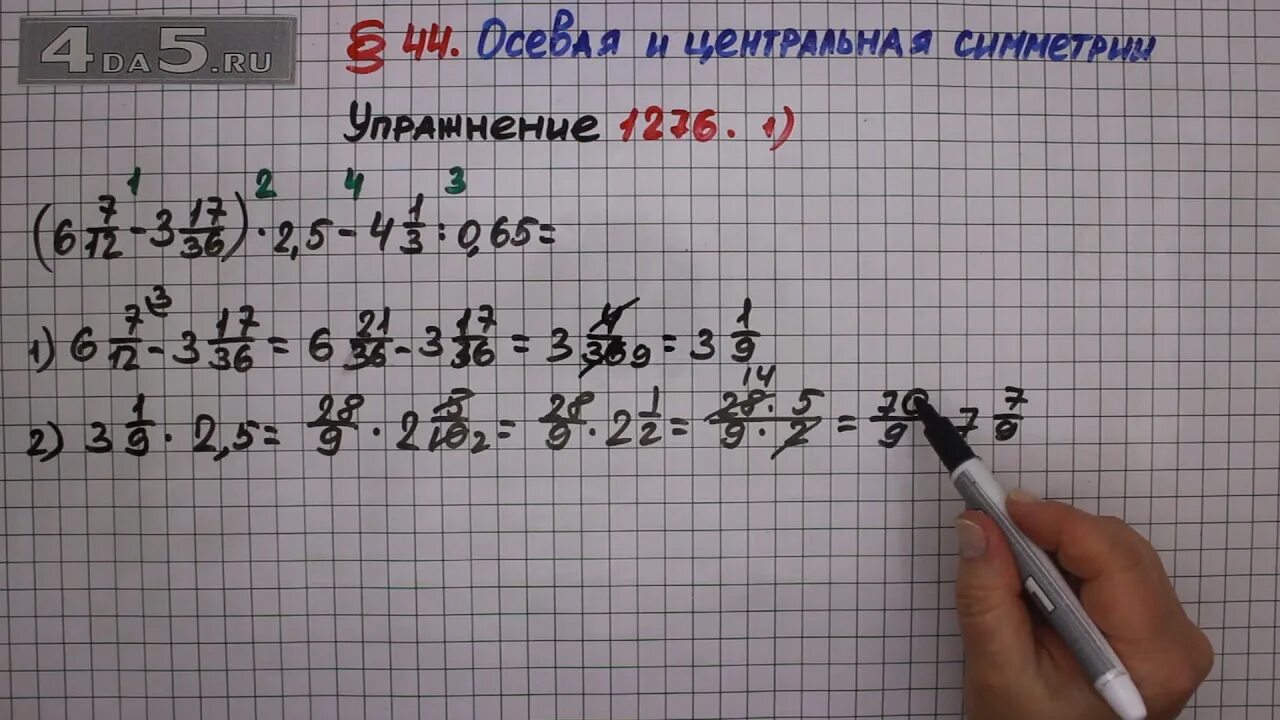 4DA5.RU
§ 44. Осевая и центральная симметрии
Упражнение 1276. 1)
1 2 4 3
(6 7/12 - 3 17/36) · 2,5 - 4 1/3 : 0,65 =
1) 6 7/12 (3 - 3 17/36 = 6 21/36 - 3 17/36 = 3 4/36 9 = 3 1/9
2) 3 1/9 · 2,5 = 28/9 · 2 5/10 2 = 28/9 · 2 1/2 = 14 28 · 5/9 · 2 = 70/9 7 7/9